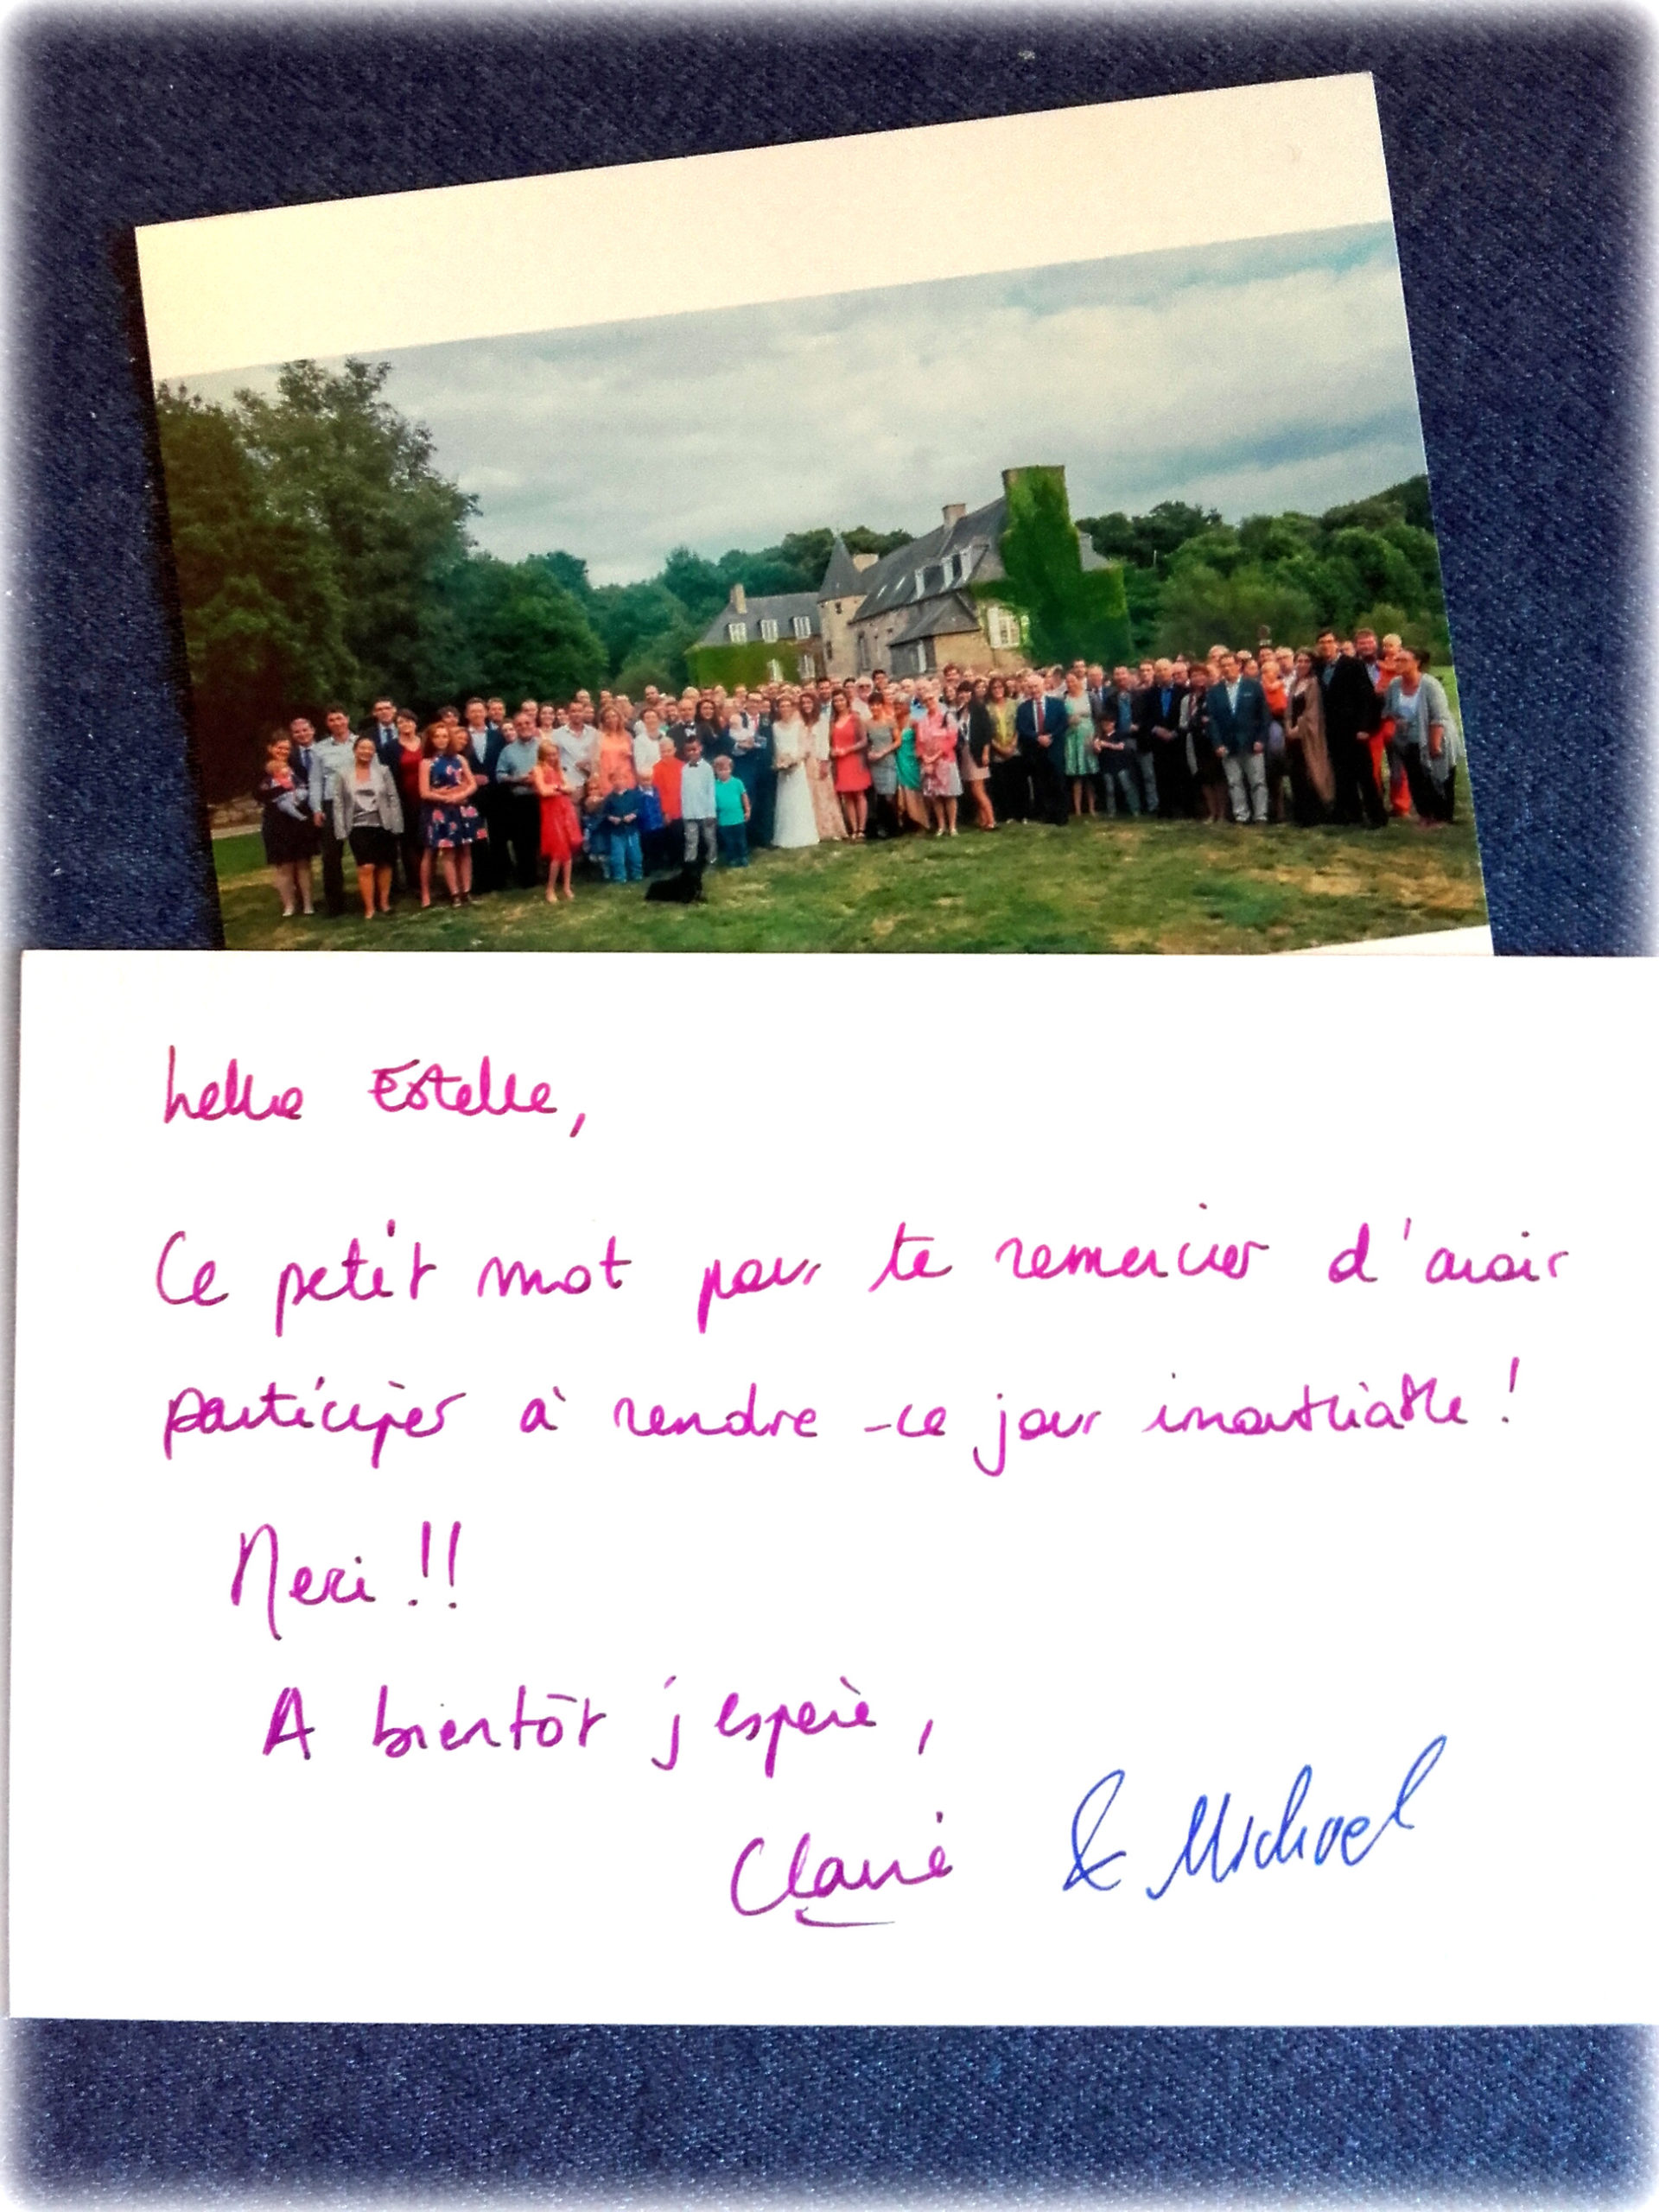 hello Estelle,
Ce petit mot pour te remercier d'avoir
participer à rendre ce jour inoubliable !
Merci !!
A bientôt j'espère,
Claire & Michael